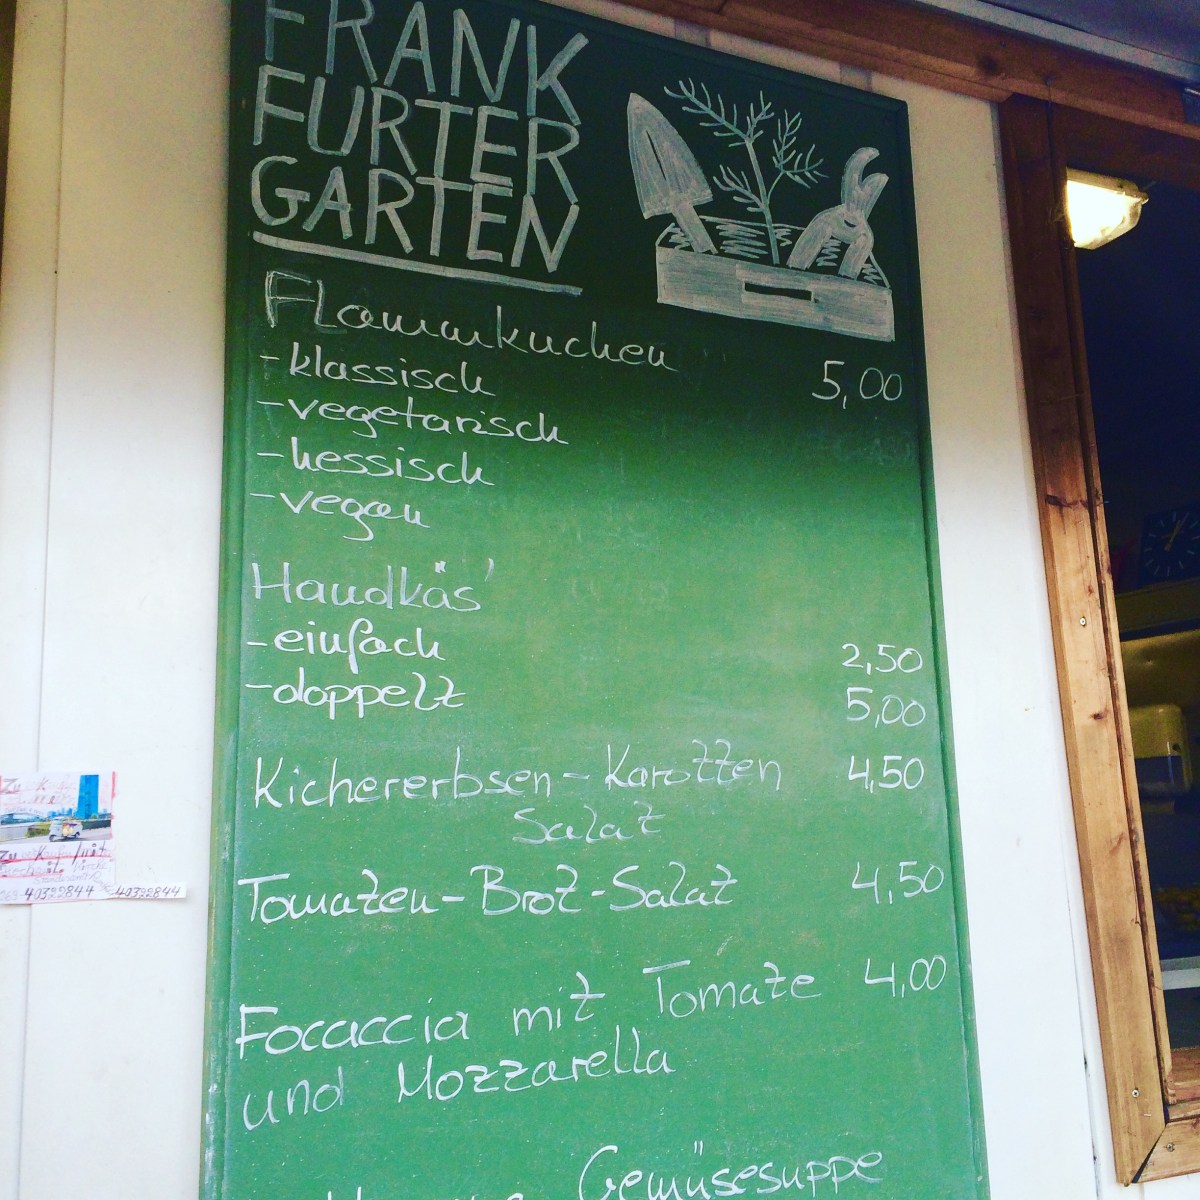 FRANK
FURTER
GARTEN
Flammkuchen 5,00
-klassisch
-vegetarisch
-hessisch
-vegan
Handkäs'
-einfach 2,50
-doppelt 5,00
Kichererbsen-Karotten 4,50
Salat
Tomaten-Brot-Salat 4,50
Focaccia mit Tomate 4,00
und Mozzarella
Gemüsesuppe
40322844 40322844